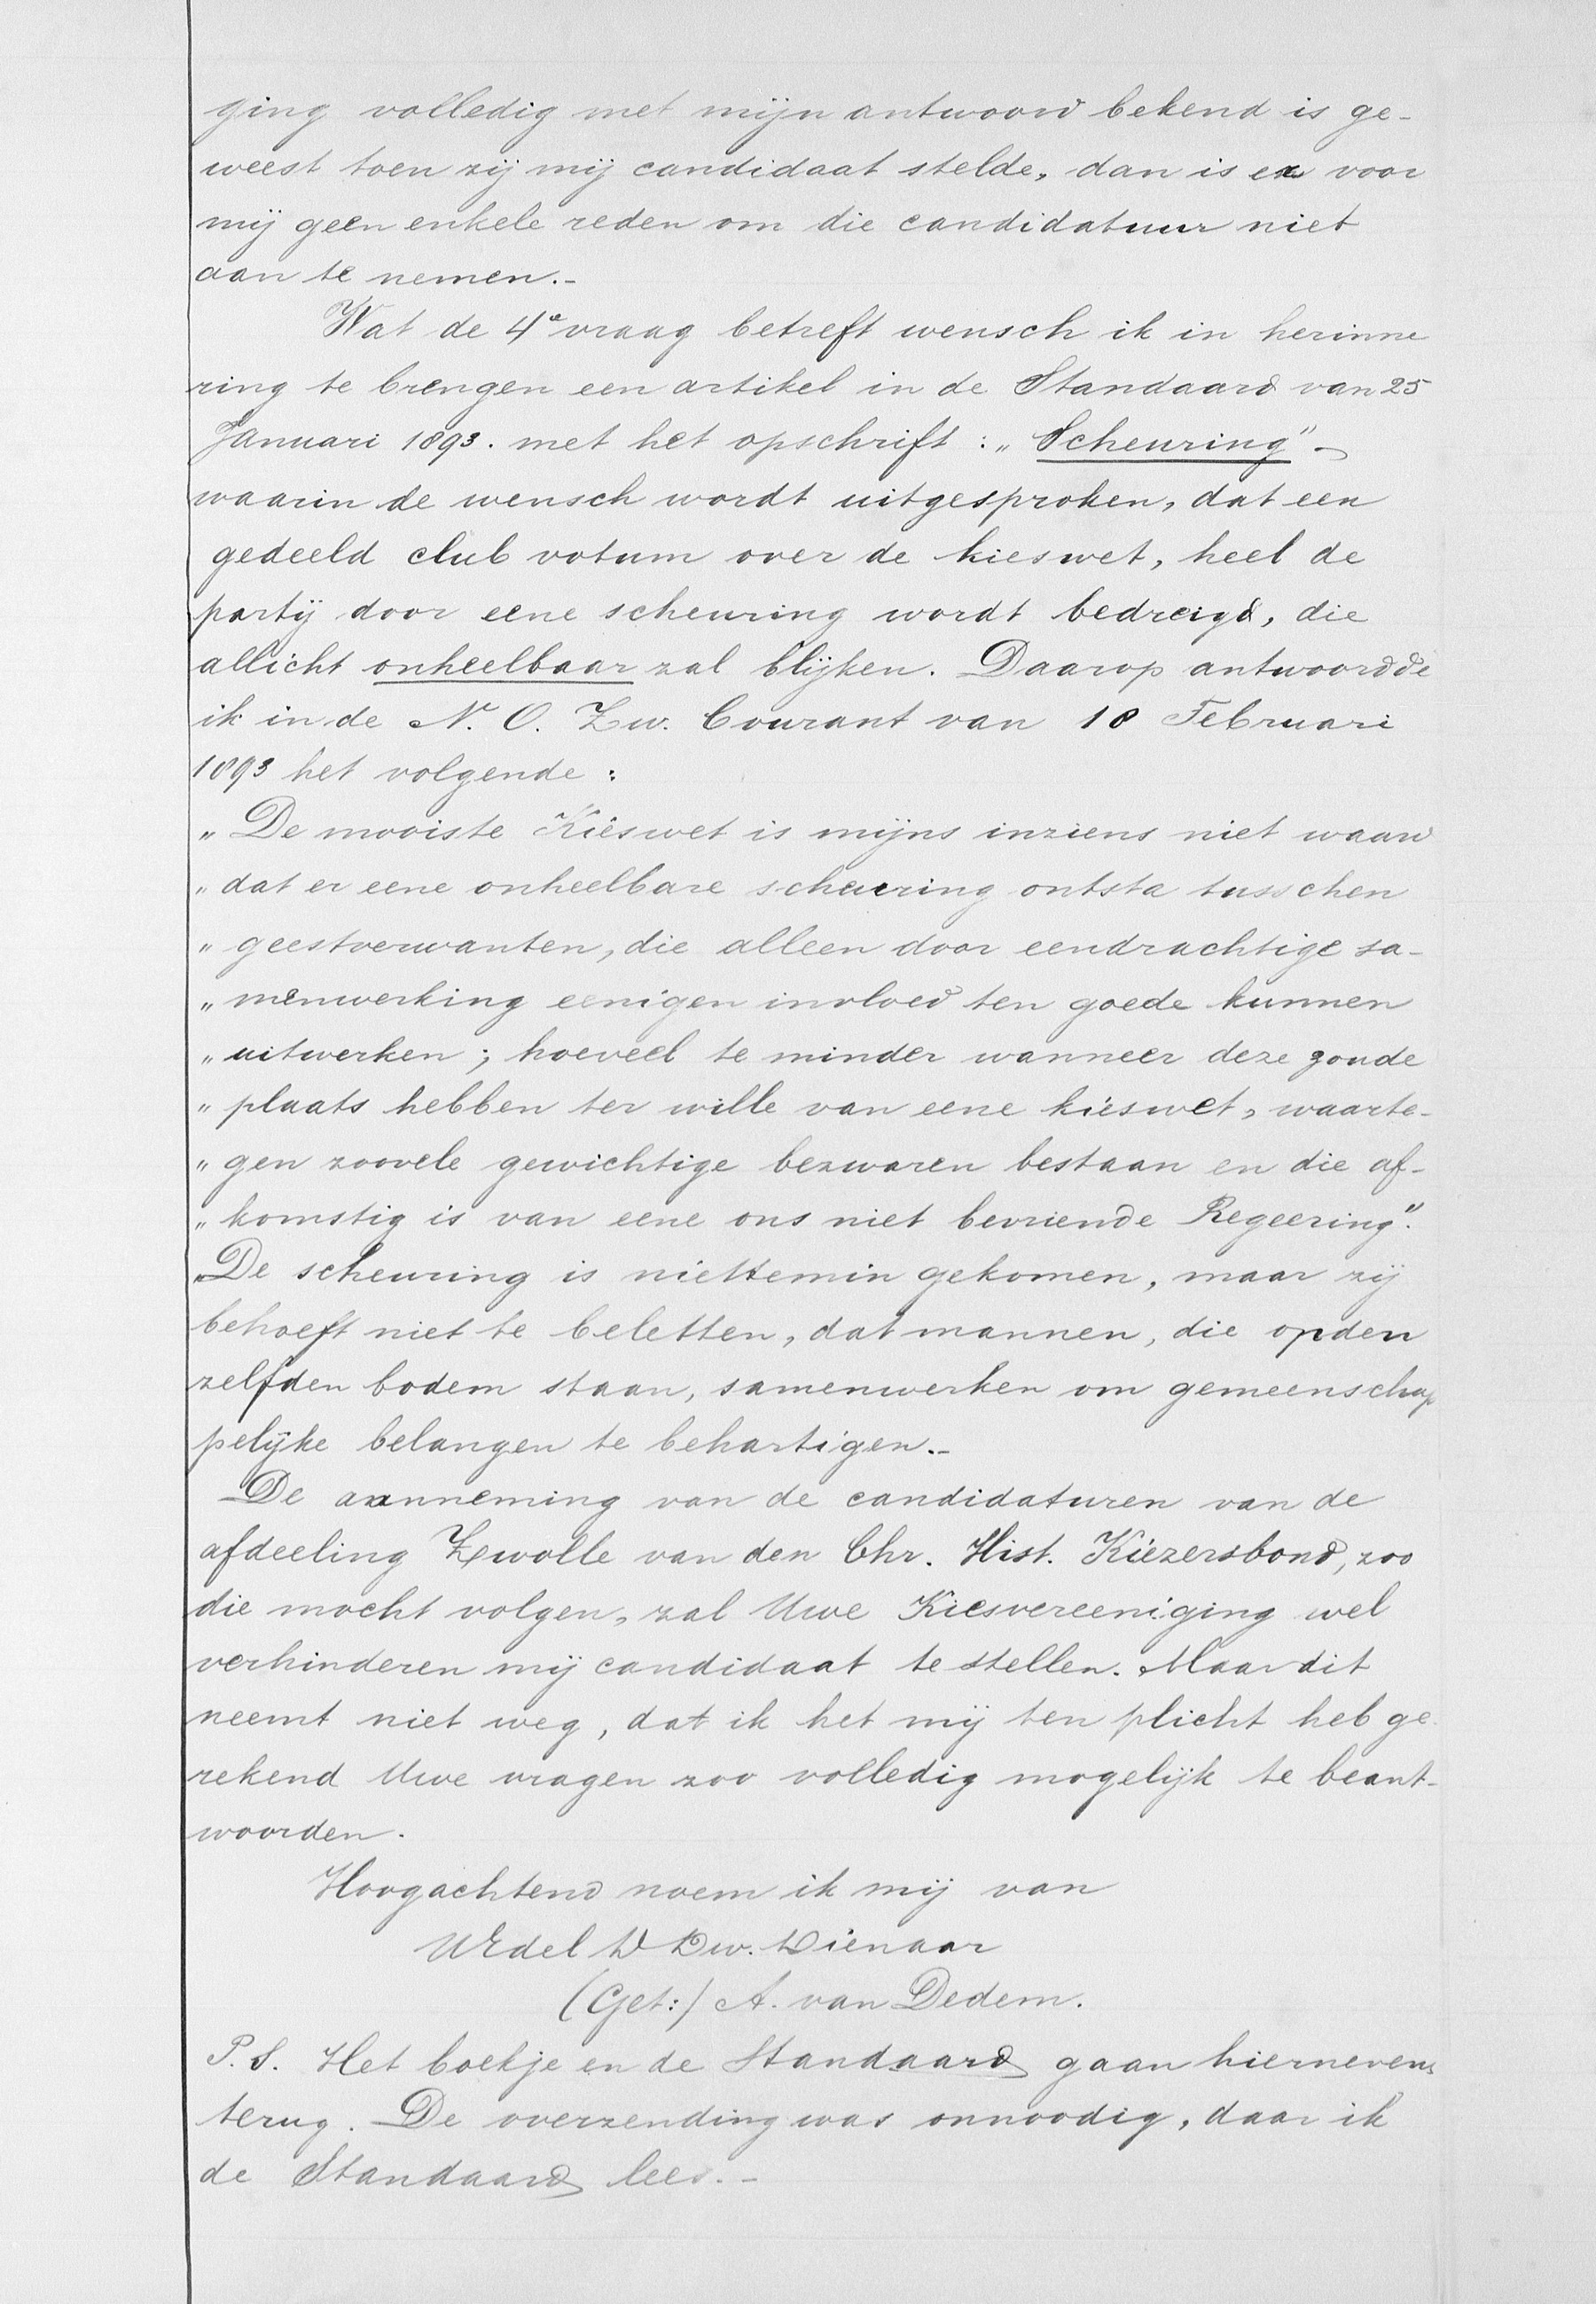 ging volledig met mijn antwoord bekend is ge-
weest toen zij mij candidaat stelde, dan is er voor
mij geen enkele reden om die candidatuur niet
aan te nemen.-
Wat de 4e vraag betreft wensch ik in herinne
ring te brengen een artikel in de Standaard van 25
Januari 1893. met het opschrift: „Scheuring"-
waarin de wensch wordt uitgesproken, dat een
gedeeld club votum over de kieswet, heel de
partij door eene scheuring wordt bedreigd, die
allicht onheelbaar zal blijken. Daarop antwoordde
ik in de N. O. Zw. Courant van 18 Februari
1893 het volgende:
„De mooiste Kieswet is mijns inziens niet waard
„dat er eene onheelbare scheuring ontsta tusschen
„geestverwanten, die alleen door eendrachtige sa-
„menwerking eenigen invloed ten goede kunnen
„uitwerken; hoeveel te minder wanneer deze zoude
„plaats hebben ter wille van eene kieswet, waarte-
„gen zoovele gewichtige bezwaren bestaan en die af-
„komstig is van eene ons niet bevriende Regeering".
„De scheuring is niettemin gekomen, maar zij
behoeft niet te beletten, dat mannen, die op den
zelfden bodem staan, samenwerken om gemeenschap
pelijke belangen te behartigen.-
De aanneming van de candidaturen van de
afdeeling Zwolle van den Chr. Hist. Kiezersbond, zoo
die mocht volgen, zal Uwe Kiesvereeniging wel
verhinderen mij candidaat te stellen. Maar dit
neemt niet weg, dat ik het mij ten plicht heb ge
rekend Uwe vragen zoo volledig mogelijk te beant-
woorden.
Hoogachtend noem ik mij van
UEdel D Dw. Dienaar
(Get:) A. van Dedem.
P.S. Het boekje en de Standaard gaan hiernevens
terug. De overzending was onnoodig, daar ik
de Standaard lees.-